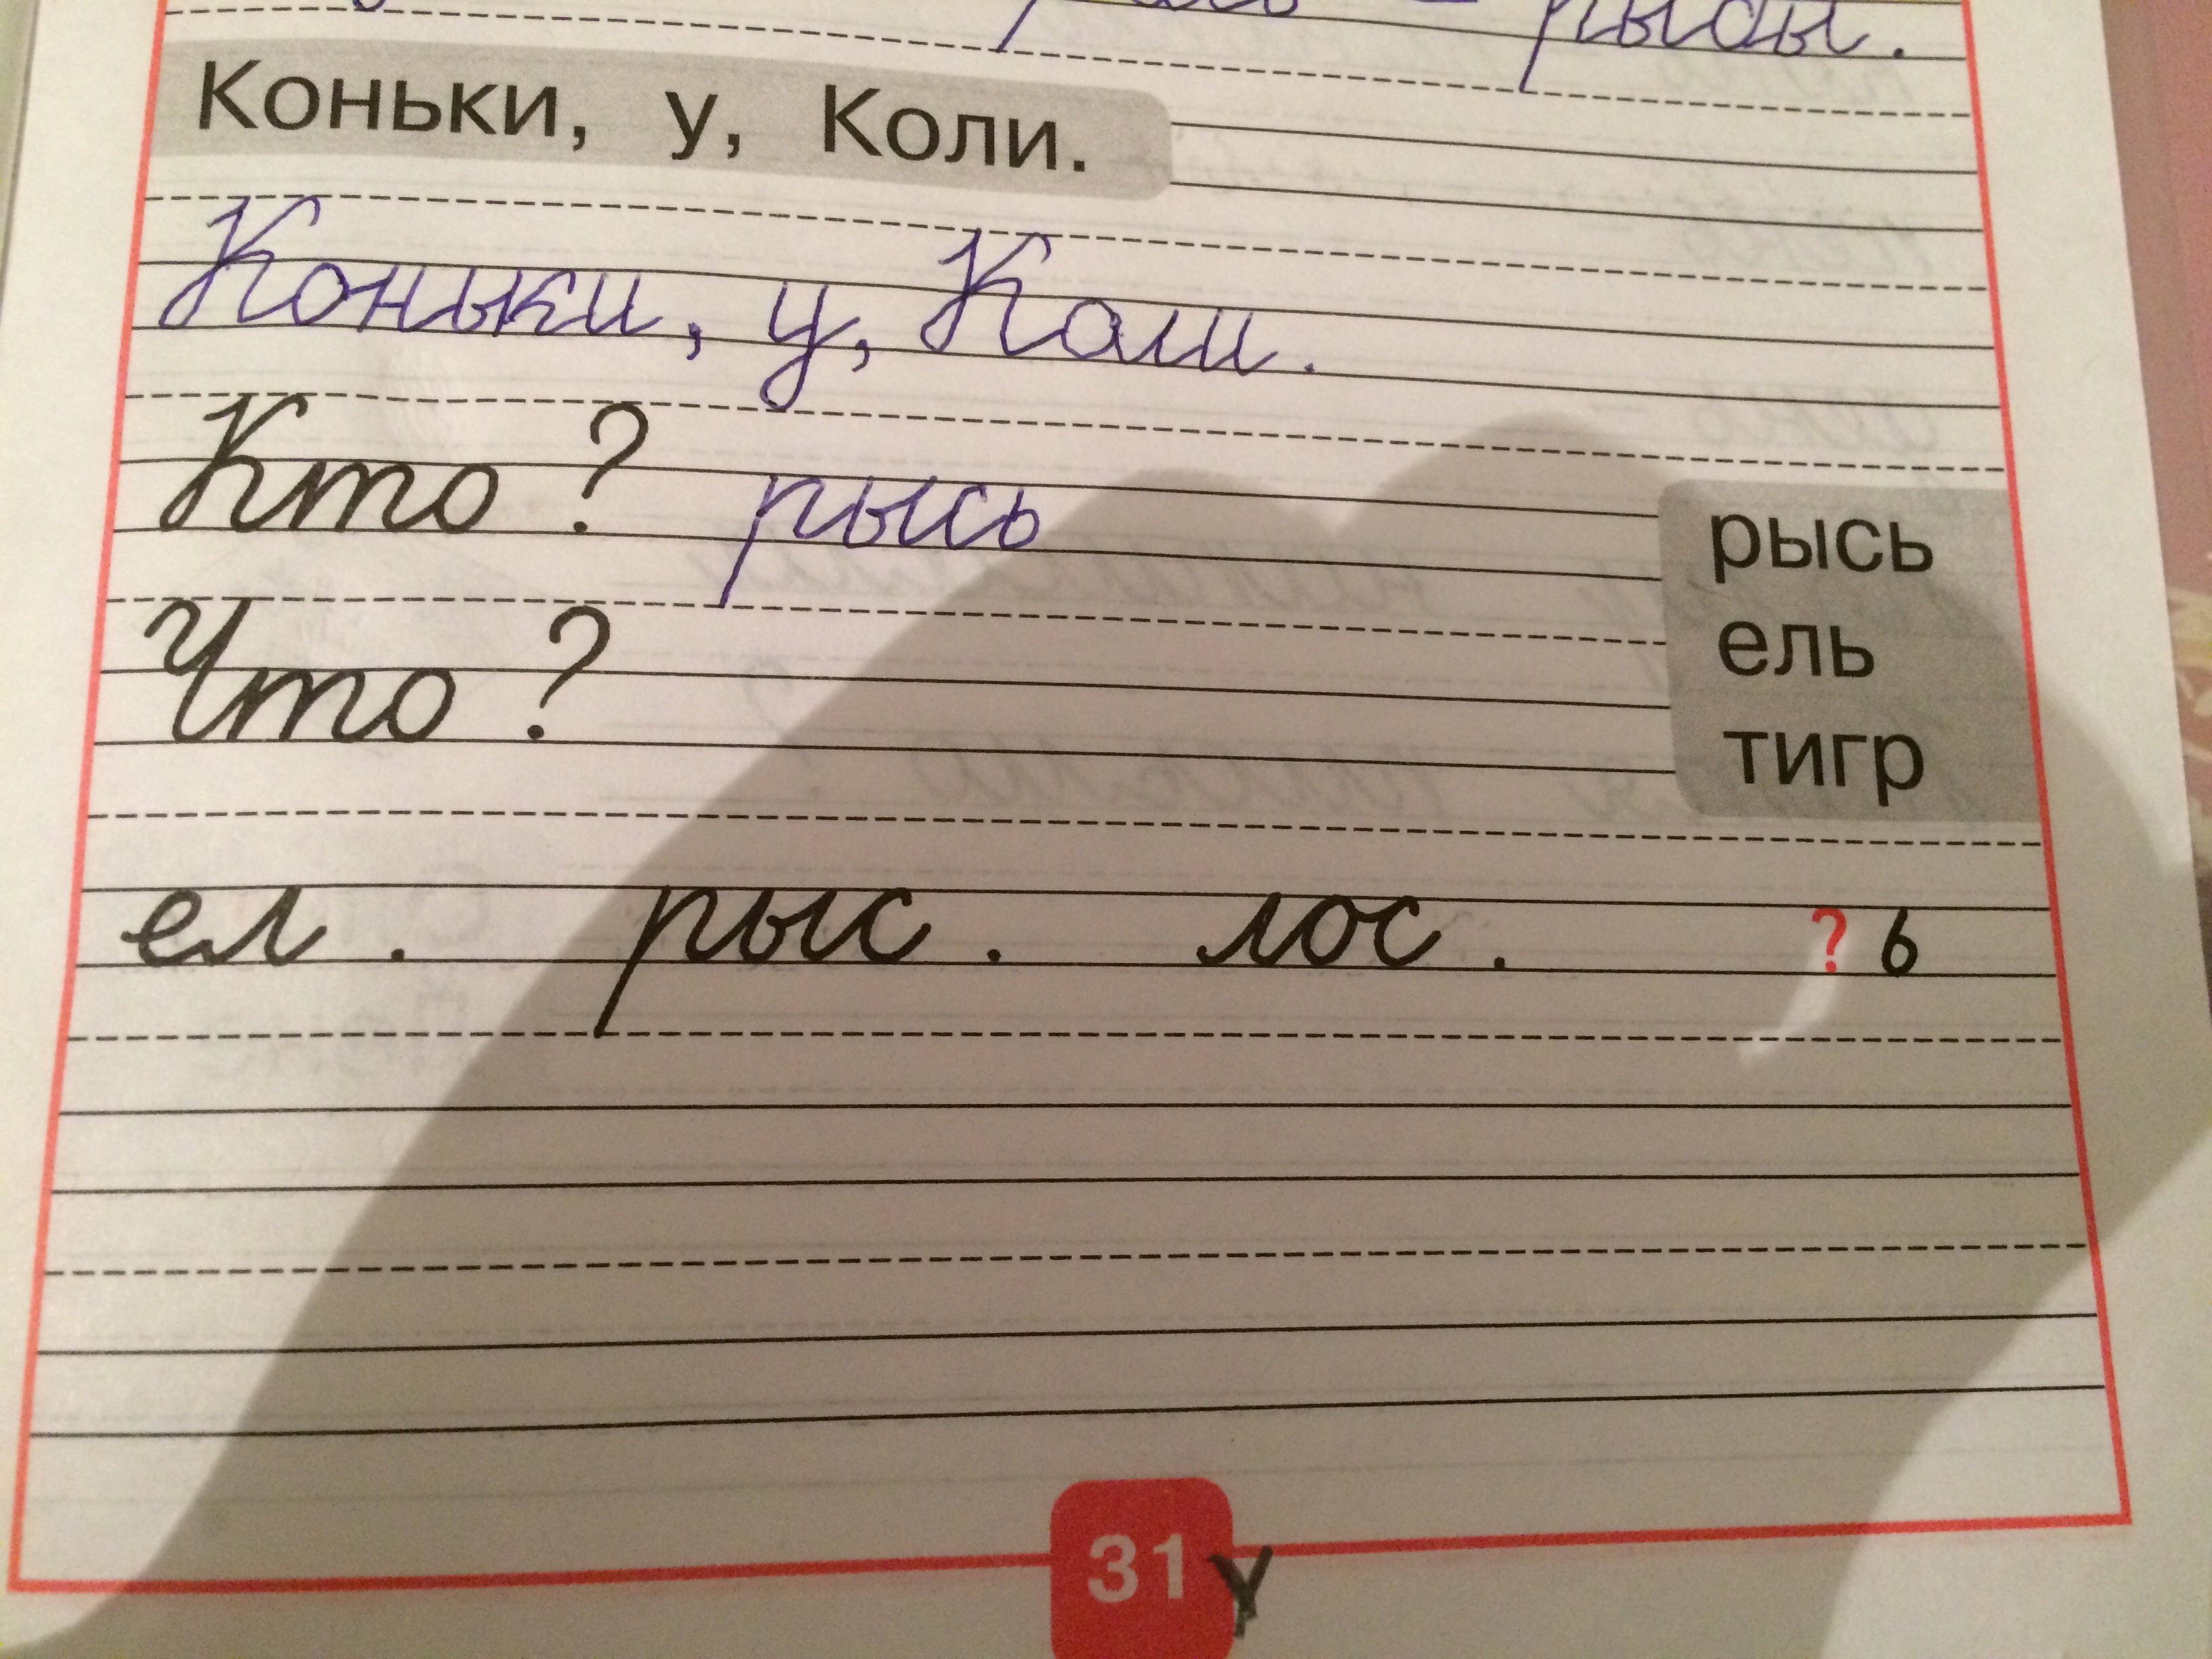 рысы.
Коньки, у, Коли.
Коньки, у, Коли.
Кто? рысь
Что?
рысь
ель
тигр
ел . рыс . лос . ? ь
31 У